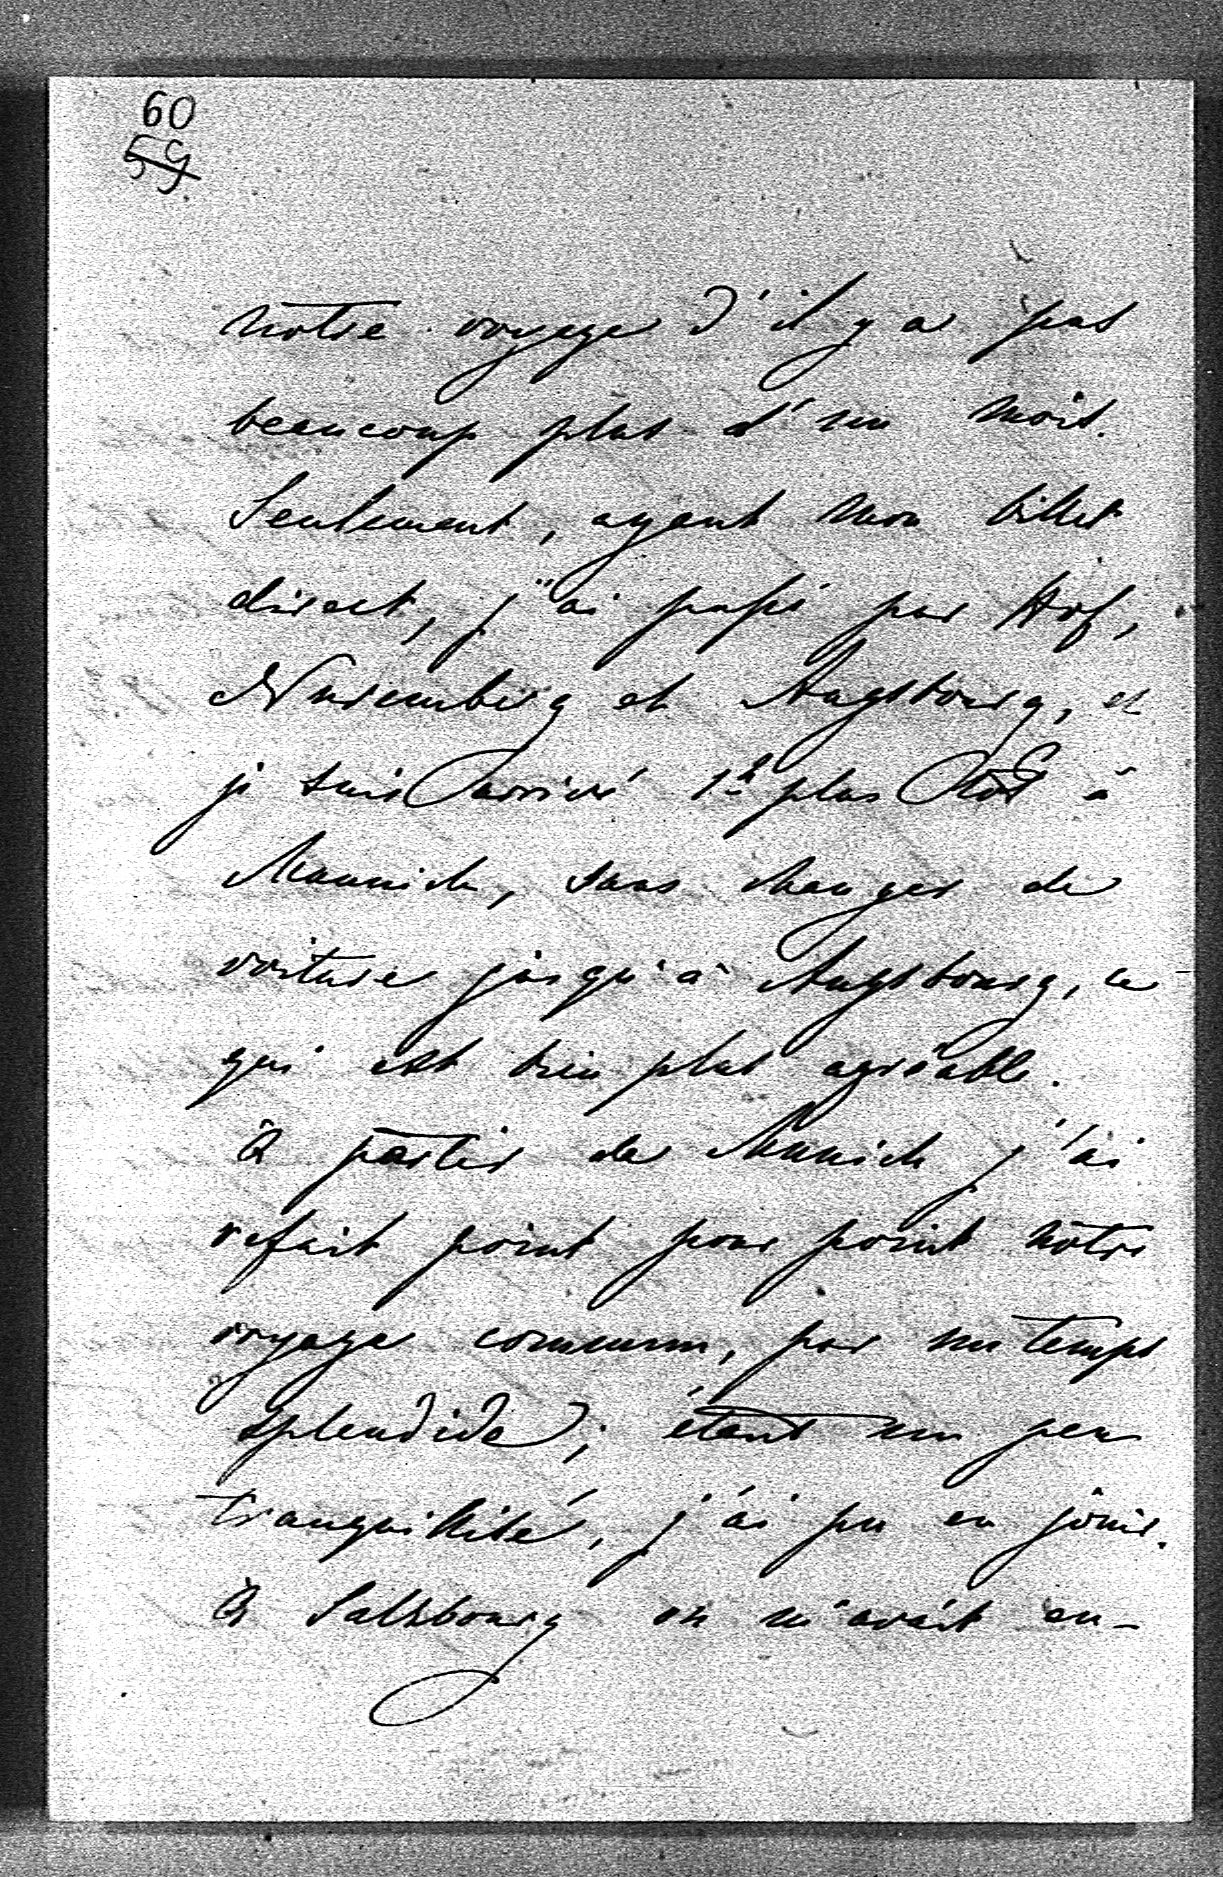 60
59
notre voyage d'il y a pas
beaucoup plus d'un mois.
Seulement, ayant mon billet
direct, j'ai passé par Hof,
Nuremberg et Augsbourg, et
je suis arrivé 1h plus tôt à
Munich, sans changer de
voiture jusqu'à Augsbourg, ce
qui est bien plus agréable.
À partir de Munich j'ai
refait point pour point notre
voyage commun, par un temps
splendide; étant un peu
tranquillisé, j'ai pu en jouir.
À Salzbourg on m'avait en-